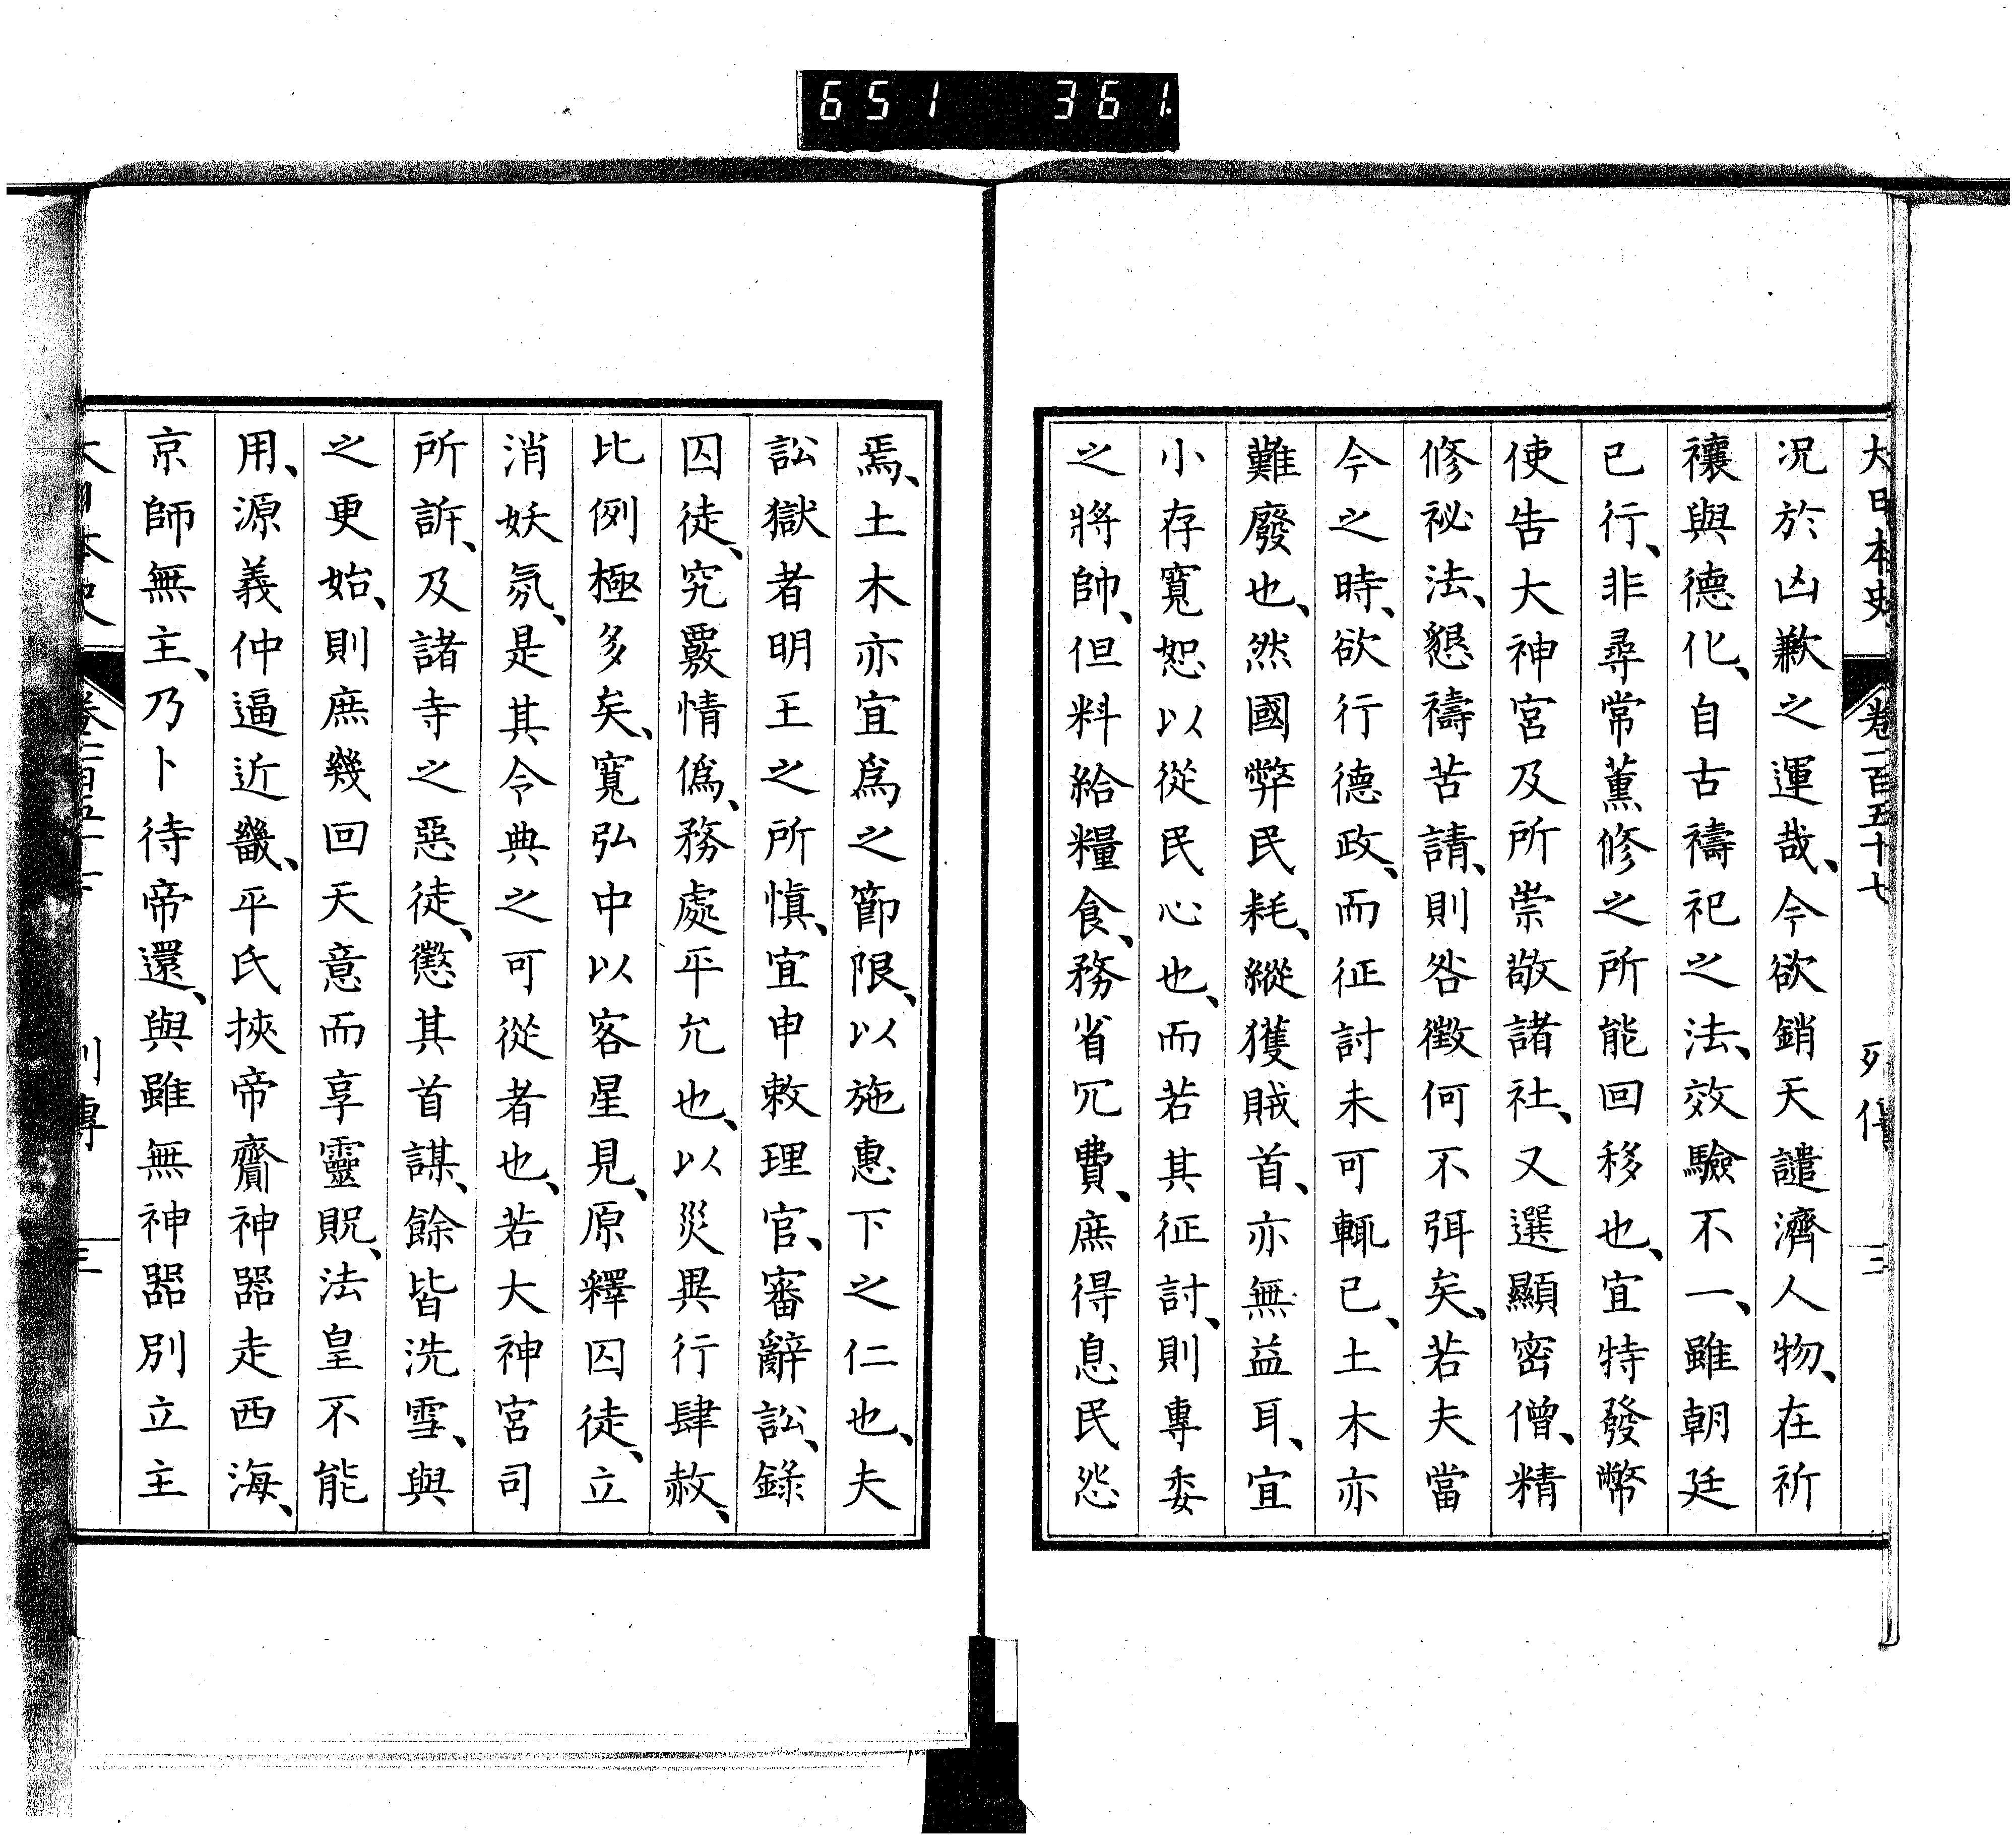 651 361
大日本史 卷一百五十七 列傳 三
況於凶歉之運哉、今欲銷天譴濟人物、在祈
禳與德化、自古禱祀之法、效驗不一、雖朝廷
已行、非尋常薰修之所能回移也、宜特發幣
使告大神宮及所崇敬諸社、又選顯密僧、精
修祕法、懇禱苦請、則咎徵何不弭矣、若夫當
今之時、欲行德政、而征討未可輒已、土木亦
難廢也、然國弊民耗、縱獲賊首、亦無益耳、宜
小存寬恕以從民心也、而若其征討、則專委
之將帥、但料給糧食、務省冗費、庶得息民怨
焉、土木亦宜爲之節限、以施惠下之仁也、夫
訟獄者明王之所愼、宜申敕理官、審辭訟、錄
囚徒、究覈情僞、務處平允也、以災異行肆赦、
比例極多矣、寬弘中以客星見、原釋囚徒、立
消妖氛、是其令典之可從者也、若大神宮司
所訴、及諸寺之惡徒、懲其首謀、餘皆洗雪、與
之更始、則庶幾回天意而享靈貺、法皇不能
用、源義仲逼近畿、平氏挾帝齎神器走西海、
京師無主、乃卜待帝還、與雖無神器別立主
大日本史 卷一百五十七 列傳 三